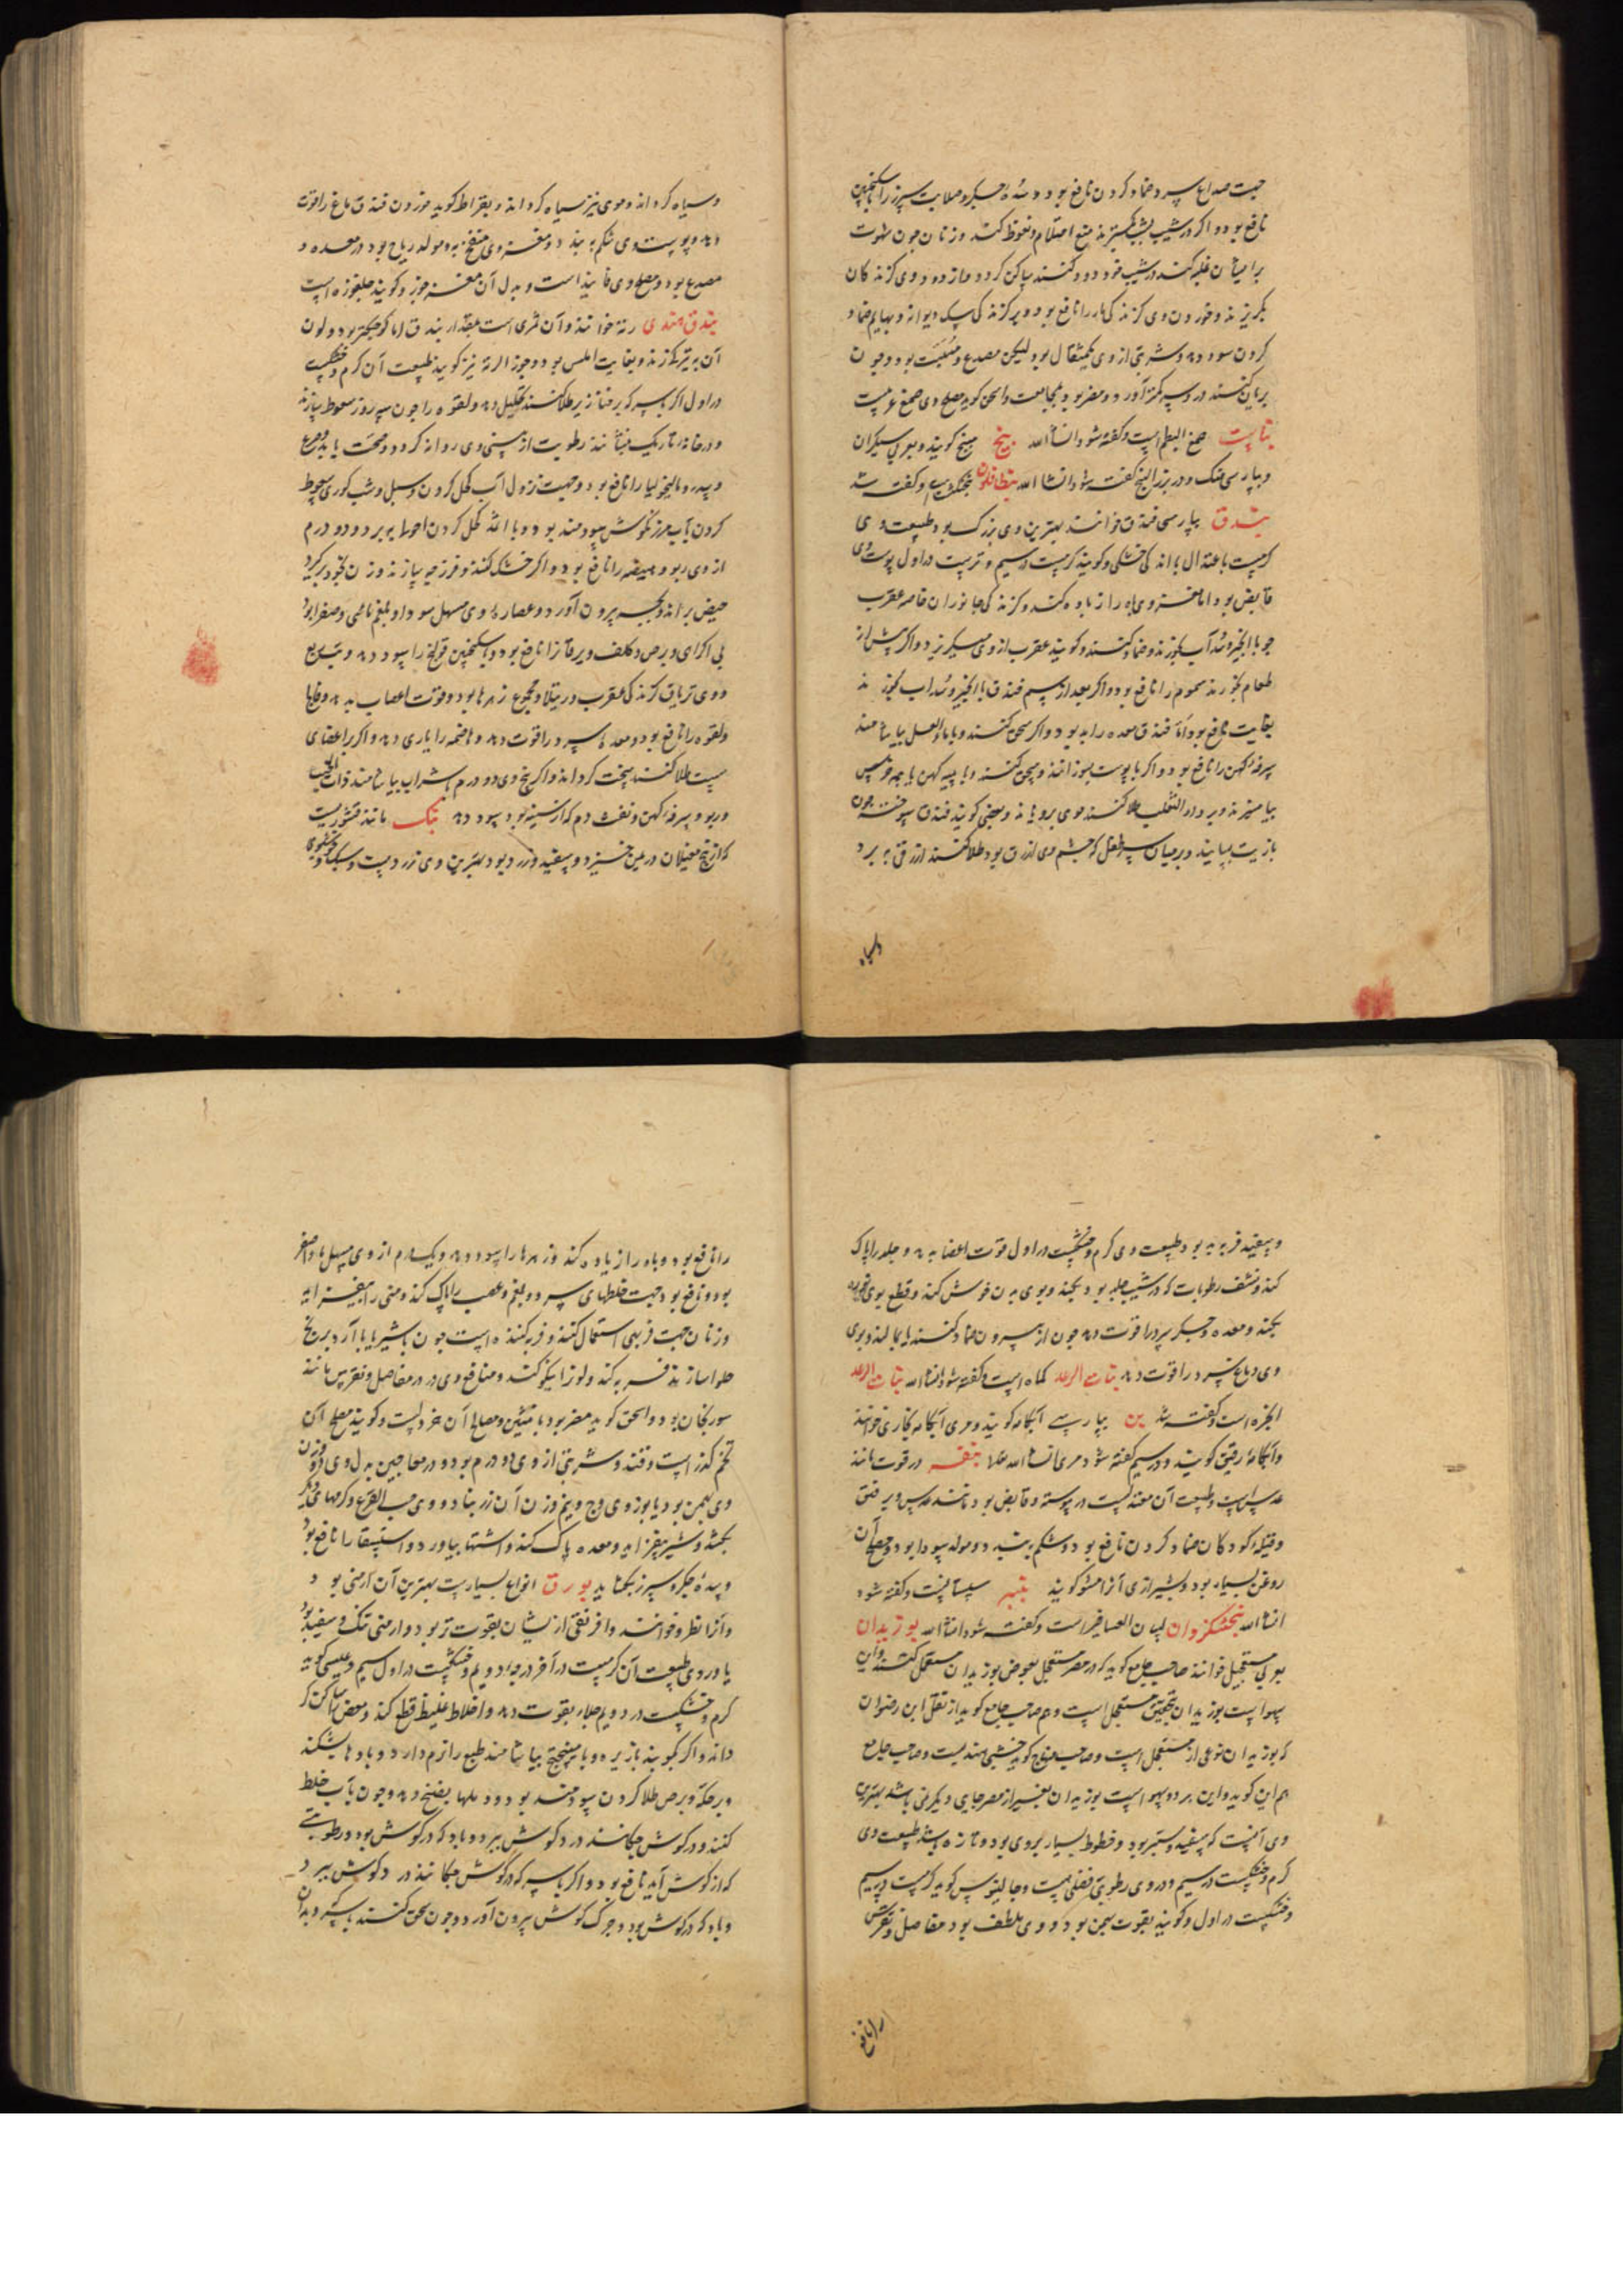 جهت صداع سرد ضماد کردن نافع بود و سده جگر و صلابت سپرز را با سکنجبین
نافع بود و اگر در شیب بستر بگسترند منع احتلام و نعوظ کند و زنان چون شهوت
بر ایشان غلبه کند در شیب خود دود کنند ساکن گردد و از دود وی گزندگان
بگریزند و خوردن وی گزندگی مار را نافع بود و بر گزندگی سگ دیوانه و بهایم ضماد
کردن سود دهد و شربتی از وی یکمثقال بود لیکن مصدع و مسبت بود و چون
بریان کنند در وی سر کمتر آورد و مضر بود بمجامعت و اسحق گوید مصلح وی صمغ عربیست
بناست صمغ البطم است و گفته شود انشا الله بنج منج گویند و بعربی سیکران
و بپارسی بنک و در بزر البنج گفته شود انشا الله بنطافلون پنجنکشت و گفته شد
بندق بپارسی فندق خوانند بهترین وی بزرگ بود و طبیعت وی
گرمست باعتدال باندکی خشکی و گویند گرمست در سیم و ترست در اول پوست وی
قابض بود اما مغز وی باه را زیاده کند و گزندگی جانوران خاصه عقرب
چو با انجیر و سداب بخورند و ضماد کنند و گویند عقرب از وی میگریزد و اگر پیش از
طعام بخورند سموم را نافع بود و اگر بعد از سم فندق با انجیر و سداب بخورند
بغایت نافع بود اما فندق معده را بد بود و اگر سحق کنند و با ماء العسل بیاشامند
سرفه کهن را نافع بود و اگر با پوست بسوزانند و سحق کنند و با پیه کهن یا پیه خرس
بیامیزند و بر داء الثعلب طلا کنند موی برویاند و بعضی گویند فندق سوخته چون
با زیت بسایند و بر میان سر طفل که چشم وی ازرق بود طلا کنند ازرقی ببرد
و سیاه
و سیاه گرداند و موی نیز سیاه گرداند و بقراط گوید خوردن فندق دماغ را قوت
دهد و پوست وی شکم ببندد و مغز وی منفخ بود و مولد ریاح بود در معده و
مصدع بود و مصلح وی فانیذ است و بدل آن مغز جوز و گویند جلغوزه است
بندق هندی رته خوانند و آن ثمری است بمقدار بندق اما کوچکتر بود و لون
آن بتیرگی زند و بغایت املس بود و جوز الرته نیز گویند طبیعت آن گرم و خشکست
در اول اگر با سرکه بر خنازیر طلا کنند تحلیل دهد و لقوه را چون سه روز سعوط سازند
و در خانه تاریک بنشانند رطوبت از بینی وی روانه گردد و صحت یابد و صرع
و سدر و مالیخولیا را نافع بود و جهت نزول آب کحل کردن و سبل و شب کوری سعوط
کردن بآب مرزنگوش سودمند بود و با اثمد کحل کردن احول ببرد و دو درم
از وی ربو و هیضه را نافع بود و اگر خشک کنند و فرزجه سازند و زن بخود برگیرد
حیض براند و بچه بیرون آورد و عصاره وی مسهل سودا و بلغم مائی و صفرا بود
بی اکراهی و برص و کلف و یرقان را نافع بود و با سکنجبین قولنج را سود دهد و تب ربع
و وی تریاق گزندگی عقرب و رتیلا و مجموع زهرها بود و قوت اعصاب بدهد و فالج
و لقوه را نافع بود و معده سرد را قوت دهد و هاضمه را یاری دهد و اگر بر اعضای
سست طلا کنند سخت گرداند و اگر بنج وی دو درم با شراب بیاشامند ذات الجنب
و ربو و سرفه کهن و نفث دم که از سینه بود سود دهد بنک مانند قشوریست
که از بیخ مغیلان در یمن خیزد و سفید و زرد بود بهترین وی زرد و سبک و خوشبوی
و سفید فربه بد بود طبیعت وی گرم و خشکست در اول قوت اعضا بدهد و جلد را پاک
کند و نشف رطوبات که در شیب جلد بود بکند و بوی بدن خوش کند و قطع بوی نوره
بکند و معده و جگر سرد را قوت دهد چون از بیرون ضماد کنند یا بمالند و بوی
وی دماغ سرد را قوت دهد بنات الرعد کماه است و گفته شود انشا الله بنات الرعد
انجره است و گفته شد بن بپارسی آبکامه گویند و مری آبکامه بخاری خوانند
و آبکامه رقیق گویند و در میم گفته شود مری انشا الله تعالی بنقه در قوت مانند
عدس است و طبیعت آن معتدلست در یبوسته و قابض بود مانند عدس و بر فتق
و قیله کودکان ضماد کردن نافع بود و شکم ببندد و مولد سودا بود و مصلح آن
روغن بسیار بود و بشیرازی آنرا مشو گویند بنبر سپستانست و گفته شود
انشا الله بنجشکزوان لسان العصافیر است و گفته شود انشا الله بوزیدان
بعربی مستعجل خوانند صاحب جامع گوید که در مصر مستعجل بعوض بوزیدان مستعمل کنند و این
سهوست بوزیدان بتحقیق مستعجل است و هم صاحب جامع گوید از نقل ابن رضوان
که بوزیدان نوعی از مستعجل است و صاحب منهاج گوید خشبی هندیست و صاحب جامع
هم این گوید و این هر دو سهو است بوزیدان بغیر از مصر جایی دیگر نمی باشد بهترین
وی آنست که سفید و ستبر بود و خطوط بسیار بر وی بود و تازه باشد طبیعت وی
گرم و خشکست در سیم و در وی رطوبتی فضلی هست و جالینوس گوید گرمست در سیم
و خشکست در اول و گویند بقوت بهمن بود و وی ملطف بود مفاصل و نقرس
را نافع
را نافع بود و باه را زیاده کند و زهرها را سود دهد و یکدرم از وی مسهل ماء اصفر
بود و نافع بود جهت خلطهای سرد و بلغم و عصب را پاک کند و منی را بیفزاید
و زنان جهت فربهی استعمال کنند و فربه کننده است چون با شیر یا با آرد برنج
حلوا سازند فربه کند و لون را نیکو کند و منافع وی در درد مفاصل و نقرس مانند
سورنجان بود و اسحق گوید مضر بود بامثین و مصلح آن خردلست و گویند مصلح آن
تخم گزر است و قند و شربتی از وی دو درم بود و در معاجین بدل وی دو وزن
وی بهمن بود یا بوزن وی وج و نیم وزن آن زرنباد و وی حب القرع و کرمهای دیگر
بکشد و شیر بیفزاید و معده پاک کند و اشتها بیاورد و استسقا را نافع بود
و سده جگر و سپرز بگشاید بورق انواع بسیارست بهترین آن ارمنی بود
و آنرا نطرون خوانند و افریقی از ایشان بقوت تر بود و ارمنی تنک و سفید بود
یا وردی طبیعت آن گرمست در آخر درجه دویم و خشکست در اول سیم و عیسی گوید
گرم و خشکست در دویم جلاء بقوت دهد و اخلاط غلیظ قطع کند و مغص ساکن گر
داند و اگر بکوبند با زیره و با میفختج بیاشامند طبع را نرم دارد و بادها بشکند
و بر حکه و برص طلا کردن سودمند بود و دملها بنضج دهد و چون بآب خلط
کنند و در گوش چکانند درد گوش ببرد و باد که در گوش بود و رطوبتی
که از گوش آید نافع بود و اگر با سرکه در گوش چکانند درد گوش ببرد
و باد که در گوش بود و چرک گوش بیرون آورد و چون سحق کنند با سرکه و بدان